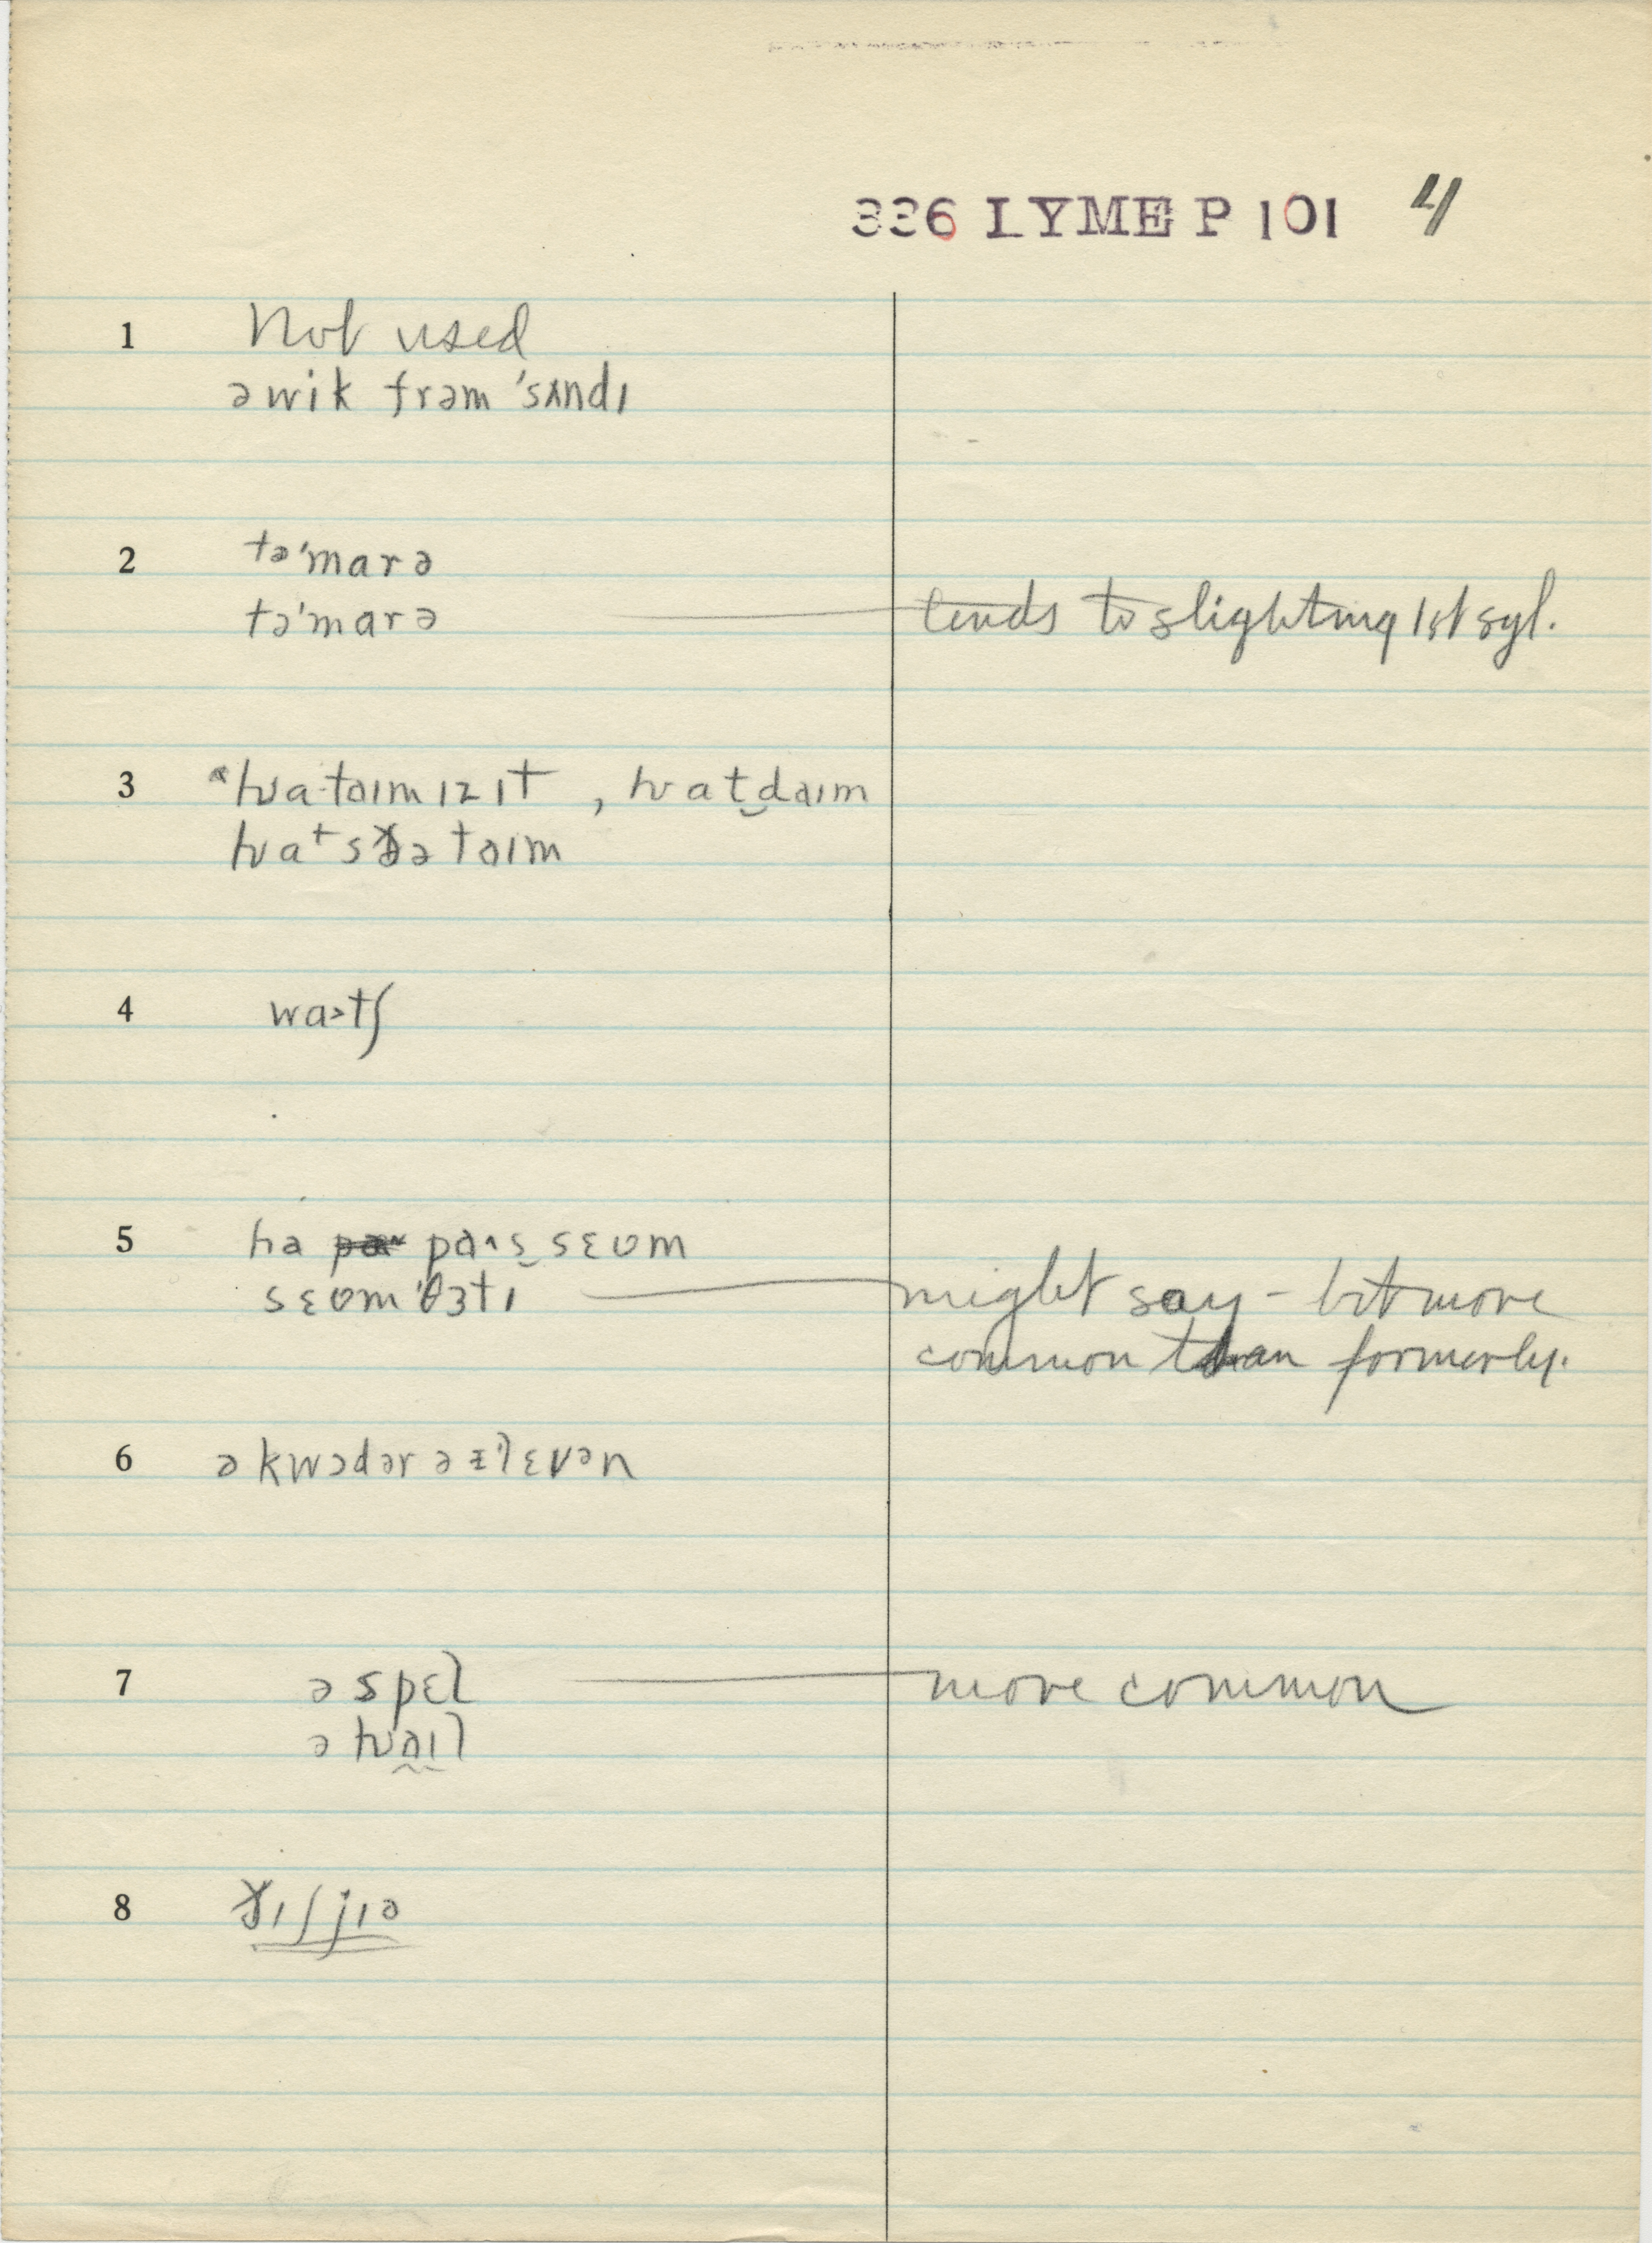 336 LYME P 101 4
1 Not used
ə wik frəm 'sʌndɪ
2 tə'marə
tə'marə tends to slighting 1st syl.
3 ʍa·taɪm ɪz ɪt , ʍat̬daɪm
ʍats ðə taɪm
4 wa>tʃ
5 ha pa^s̬ sɛʊm
sɛʊm'θɜtɪ might say - bit more
common than formerly.
6 ə kwɔdər ə ɪ'lɛvən
7 ə spɛl more common
ə ʍaɪl
8 ðɪʃ jɪə